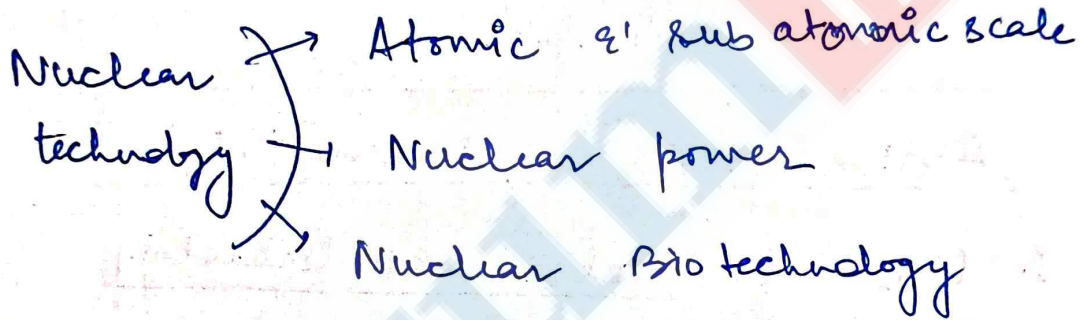 Nuclear technology
Atomic & sub atomic scale
Nuclear power
Nuclear Biotechnology